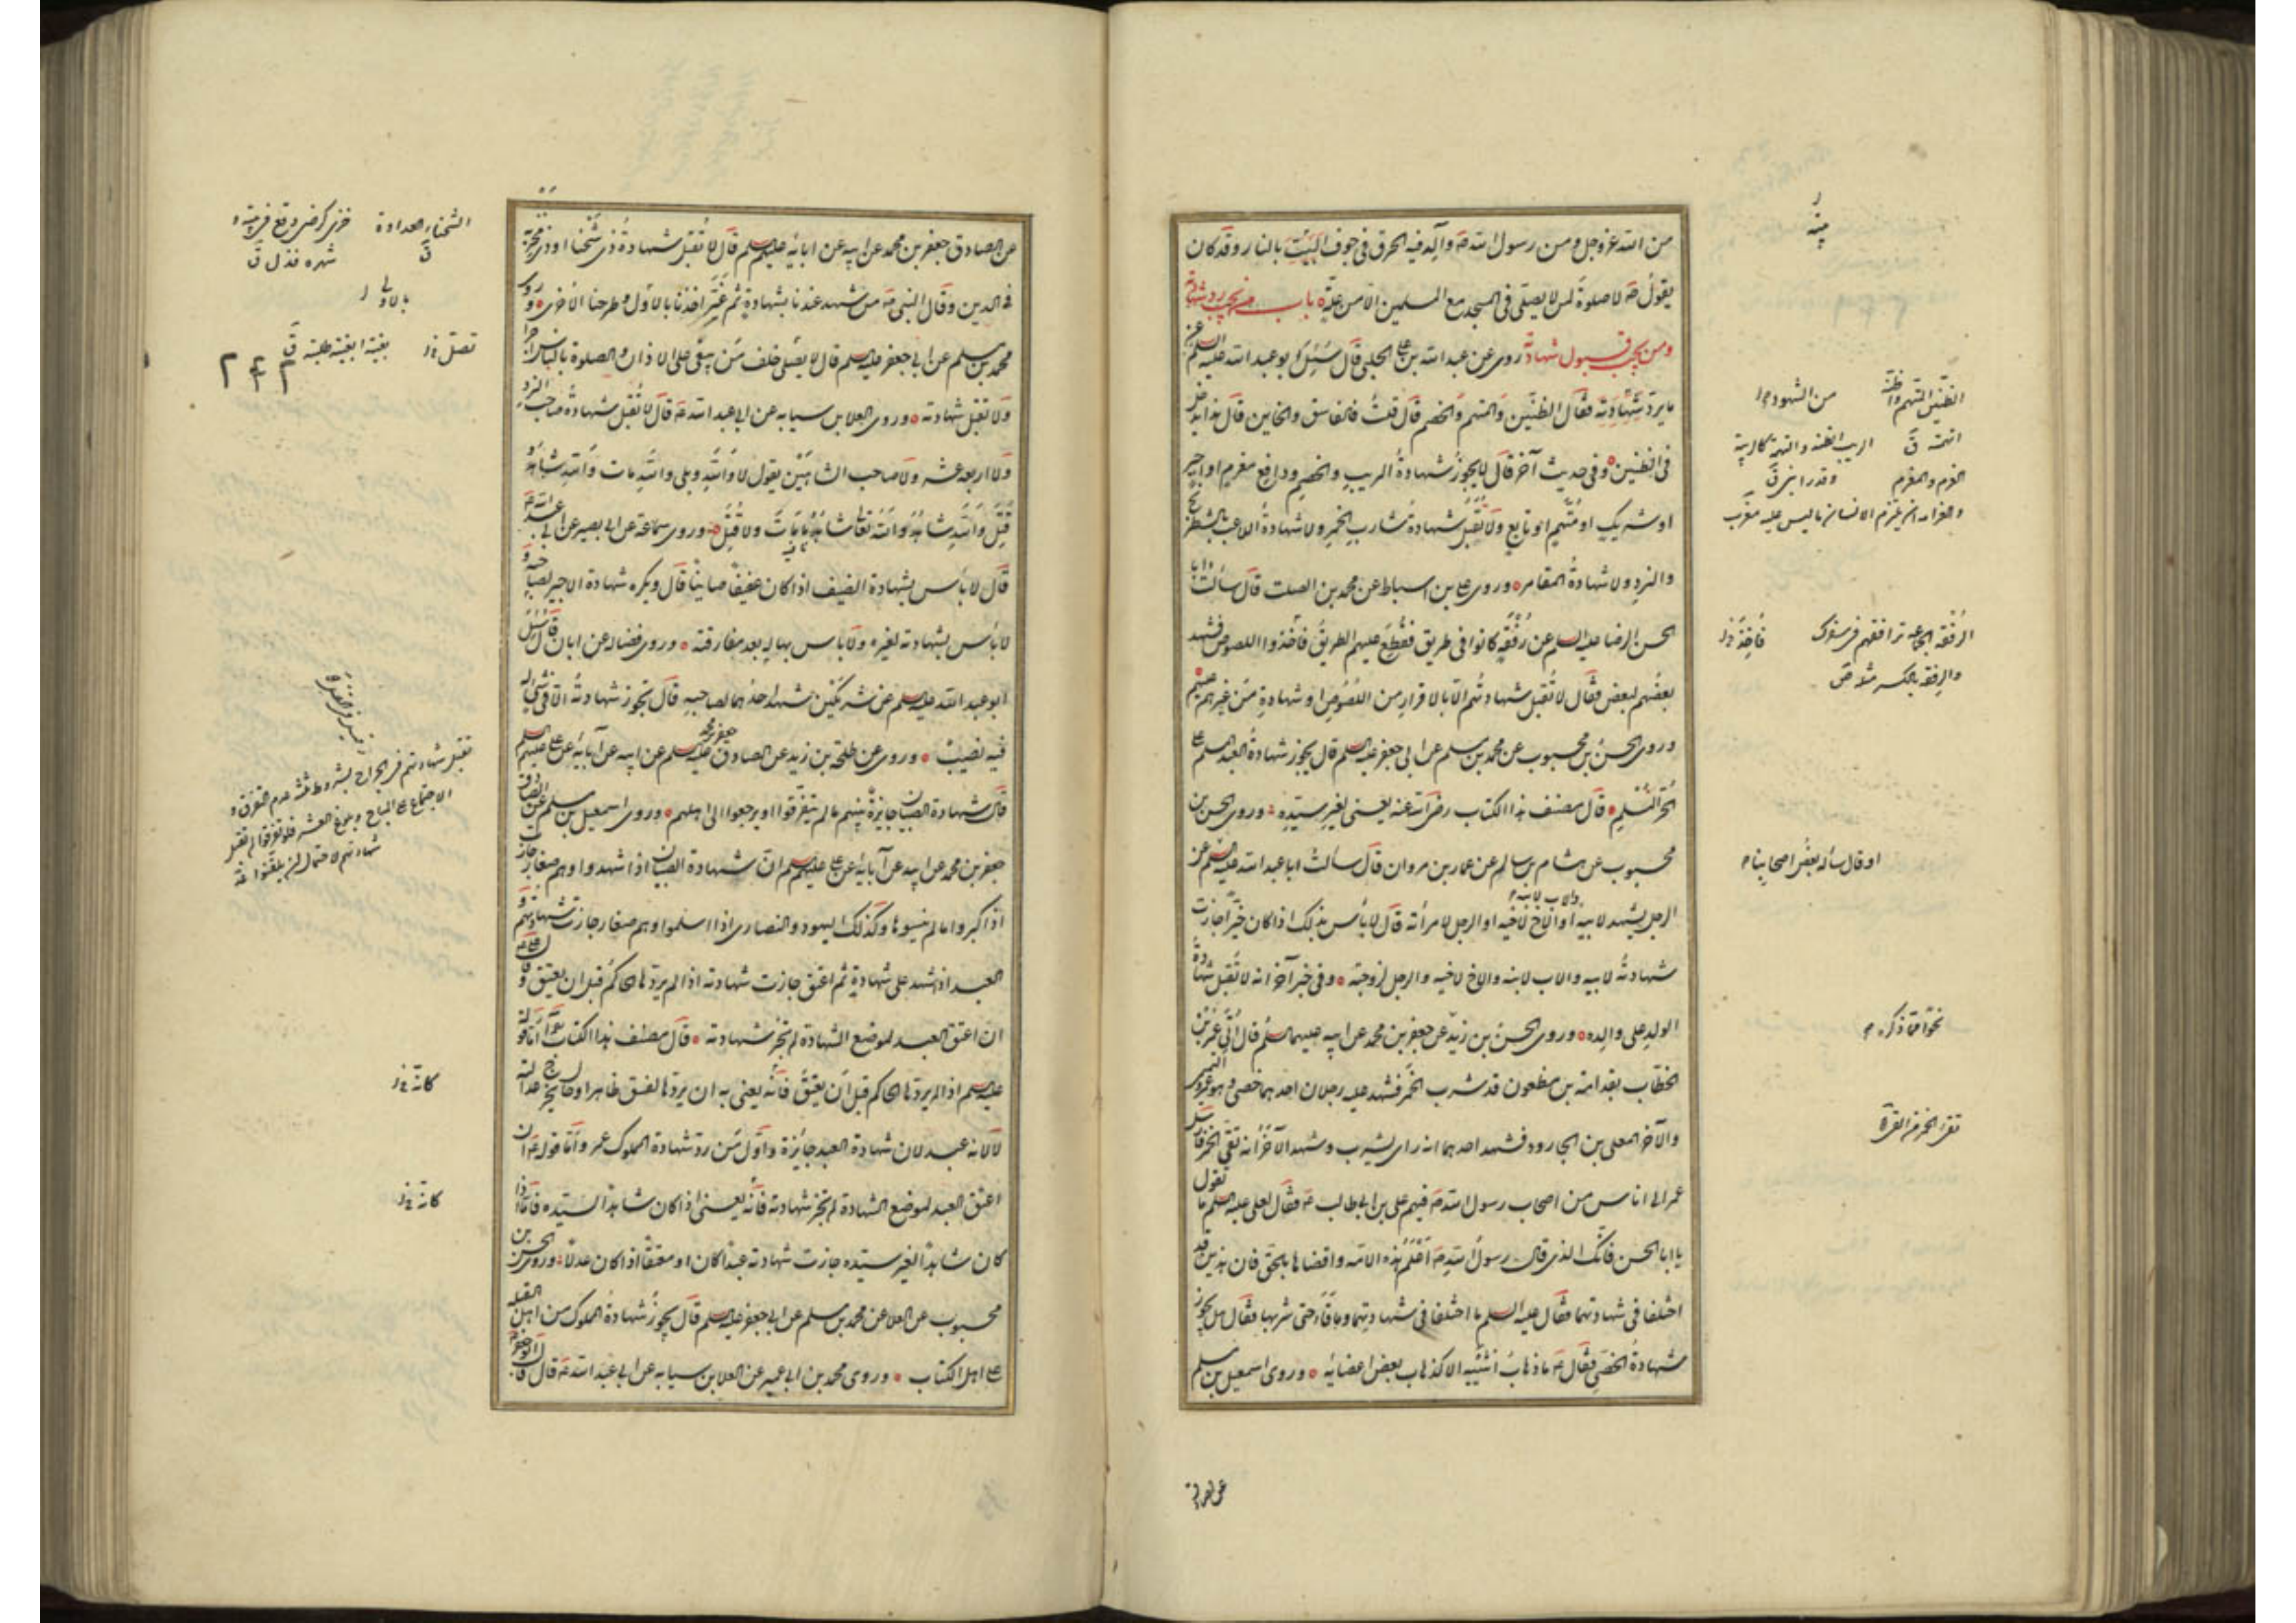 من الله عز وجل ومن رسول الله صَ وآله فيه الحرق فى جوف البيت بالنار وقد كان
يقول صَ لا صلوة لمن لا يصلى فى المسجد مع المسلمين الا من علة باب من يجب رد شهادته
ومن يجب قبول شهادته روى عن عبد الله بن على الحلبى قال سئل ابو عبد الله عليه السلم عن
ما يرد من الشهود فقال الظنين والمتهم والخصم قال قلت فالفاسق والخاين قال هذا يدخل
فى الظنين وفى حديث آخر قال لا يجوز شهادة المريب والخصم ودافع مغرم او اجير
او شريك او متهم او تابع ولا تقبل شهادة شارب الخمر ولا شهادة اللاعب بالشطرنج
والنرد ولا شهادة المقامر وروى على بن اسباط عن محمد بن الصلت قال سألت ابا
الحسن الرضا عليه السلم عن رفقة كانوا فى طريق فقطع عليهم الطريق فأخذوا اللصوص فشهد
بعضهم لبعض فقال لا تقبل شهادتهم الا بالاقرار من اللصوص او شهادة من غيرهم عليهم
وروى الحسن بن محبوب عن محمد بن مسلم عن ابى جعفر عليه السلم قال يجوز شهادة العبد المسلم على
الحر المسلم قال مصنف هذا الكتاب رضى الله عنه يعنى لغير سيده وروى الحسن بن
محبوب عن هشام بن سالم عن عمار بن مروان قال سألت ابا عبد الله عليه السلم عن
الرجل يشهد لابيه والاب لابنه او الاخ لاخيه او الرجل لامرأته قال لا بأس بذلك اذا كان خيرا جازت
شهادته لابيه والاب لابنه والاخ لاخيه والرجل لزوجته وفى خبر آخر انه لا تقبل شهادة
الولد على والده وروى الحسن بن زيد عن جعفر بن محمد عن ابيه عليهما السلم قال اتى عمر بن
الخطاب بقدامة بن مظعون قد شرب الخمر فشهد عليه رجلان احدهما خصى وهو عمرو التميمى
والآخر المعلى بن الجارود فشهد احدهما انه رأى يشرب وشهد الآخر انه تقى الخمر فارسل
عمر الى اناس من اصحاب رسول الله صَ فيهم على بن ابى طالب عَ فقال لعلى عليه السلم ما تقول
يا ابا الحسن فانك الذى قال رسول الله صَ اعلم هذه الامة واقضاها بالحق فان هذين قد
اختلفا فى شهادتهما فقال عليه السلم ما اختلفا فى شهادتهما وما قاءها حتى شربها فقال هل يجوز
شهادة الخصى فقال عَ ما ذهاب انثييه الا كذهاب بعض اعضائه وروى اسمعيل بن مسلم
الظنين المتهم والظنة
من الشهود
التهمة ق
الريب الظنة والتهمة كالريبة
الغرم والمغرم
الرفقة الجماعة ترافقهم فى سفرك
فأخذ خ‌ل
او قال سأله بعض اصحابنا
نحوا مما ذكره
عن الصادق
عن الصادق جعفر بن محمد عن ابيه عن ابائه عليهم السلم قال لا تقبل شهادة ذى شحنا او ذى مخزية
فى الدين وقال النبى صَ من شهد عندنا بشهادة ثم غير اخذنا بالاول وطرحنا الاخرى وروى
محمد بن مسلم عن ابى جعفر عليه السلم قال لا يصلى خلف من يبتغى على الاذان والصلوة بالناس اجرا
ولا تقبل شهادته وروى العلا بن سيابه عن ابى عبد الله عَ قال لا تقبل شهادة صاحب النرد
ولا اربعه عشر ولا صاحب الشاهين يقول لا والله وبلى والله مات والله شاهه
قتل والله شاهه والله تعالى شاهه ما مات ولا قتل وروى سماعة عن ابى بصير عن ابى عبد الله عَ
قال لا بأس بشهادة الضيف اذا كان عفيفا صاينا قال ويكره شهادة الاجير لصاحبه و
لا بأس بشهادته لغيره ولا باس بها له بعد مفارقته وروى فضاله عن ابان قال سئل
ابو عبد الله عليه السلم عن شريكين شهد احدهما لصاحبه قال تجوز شهادته الا فى شى له
فيه نصيب وروى عن طلحة بن زيد عن الصادق جعفر بن محمد عليه السلم عن ابيه عن آبائه عن على عليهم السلم
قال شهادة الصبيان جايزة بينهم ما لم يتفرقوا او يرجعوا الى اهلهم وروى اسمعيل بن مسلم عن الصادق
جعفر بن محمد عن ابيه عن آبائه عن على عليهم السلم ان شهادة الصبيان اذا اشهدوا وهم صغار جازت
اذا كبروا ما لم ينسوها وكذلك اليهود والنصارى اذا اسلموا وهم صغار جازت شهادتهم و
العبد اذا شهد على شهادة ثم اعتق جازت شهادته اذا لم يردها الحاكم قبل ان يعتق وقال على عَ
ان اعتق العبد لموضع الشهادة لم تجز شهادته قال مصنف هذا الكتاب اما قوله
عليه السلم اذا لم يردها الحاكم قبل ان يعتق فانه يعنى به ان يردها لفسق ظاهر او حال يجرح عدالته
لا لانه عبد لان شهادة العبد جائزة واول من رد شهادة المملوك عمر واما قوله عَ ان
اعتق العبد لموضع الشهادة لم تجز شهادته فانه يعنى اذا كان شاهدا لسيده فاما اذا
كان شاهدا لغير سيده جازت شهادته عبدا كان او معتقا اذا كان عدلا وروى الحسن بن
محبوب عن العلا عن محمد بن مسلم عن ابى جعفر عليه السلم قال يجوز شهادة المملوك من اهل القبلة
على اهل الكتاب وروى محمد بن ابى عمير عن العلا بن سيابه عن ابى عبد الله عَ قال قال ابو جعفر عَ
الشحناء العداوة
ق
خزى كرضى وقع فى بلية و
شهره فذل ق
بالاولى
تصلى خ‌ل
بغيته ابغيه طلبته ق
تقبل شهادتهم فى الجراح بشروط ثلثة عدم التفرق و
الاجتماع على المباح وبلوغ العشر فلو تفرقوا لم تقبل
شهادتهم لاحتمال ان يلقنوا
كانه خ‌ل
كانه خ‌ل